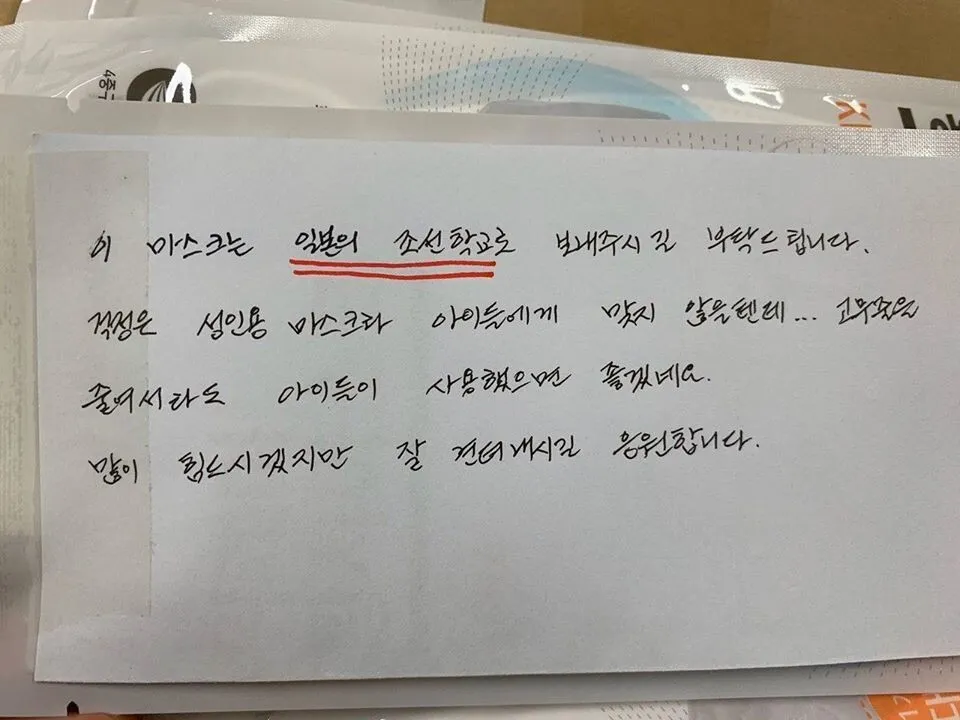 이 마스크는 일본의 조선학교로 보내주시길 부탁드립니다.
걱정은 성인용 마스크라 아이들에게 맞지 않을텐데... 고무줄을
줄여서라도 아이들이 사용했으면 좋겠네요.
많이 힘드시겠지만 잘 견뎌내시길 응원합니다.